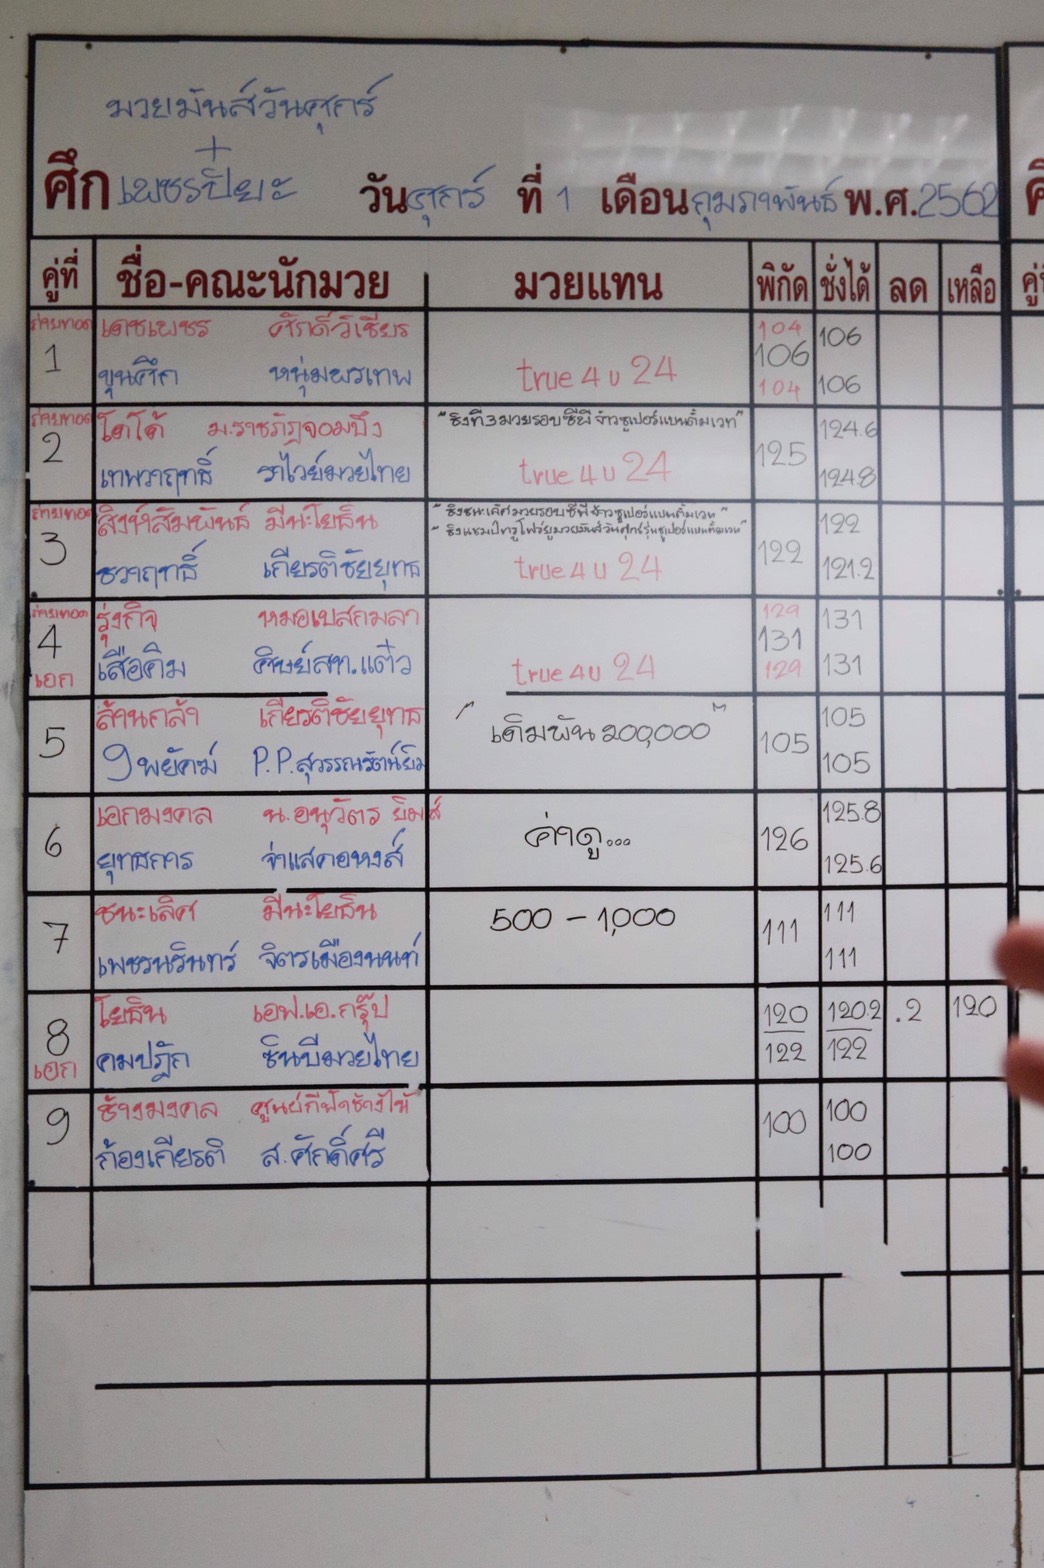 มวยมันส์วันศุกร์
+
ศึก เพชรปิยะ วัน ศุกร์ ที่ 1 เดือน กุมภาพันธ์ พ.ศ. 2562
คู่ที่ ชื่อ-คณะนักมวย มวยแทน พิกัด ชั่งได้ ลด เหลือ
ถ่ายทอด เดชเพชร ศักดิ์วิเชียร 104 106
1 106
ขุนศึก หนุ่มพรเทพ true 4 u 24 104 106
ถ่ายทอด โตโต้ ม.ราชภัฏจอมบึง "ชิงที่3มวยรอบซีพี จ้าวซูเปอร์แบนตั้มเวท" 124.6
2 125
เทพฤทธิ์ ราไวย์มวยไทย true 4 u 24 124.8
ถ่ายทอด สิงห์สัมพันธ์ มีนะโยธิน 122
3 122
ชวฤทธิ์ เกียรติชัยยุทธ true 4 u 24 121.2
ถ่ายทอด รุ่งกิจ หมอเบสกมลา 129 131
4 131
เอก เสือคิม ศิษย์สท.แต๋ว true 4 u 24 129 131
ล้านกล้า เกียรติชัยยุทธ 105
5 "เดิมพัน 200,000" 105
9พยัคฆ์ P.P.สุวรรณรัตน์ยิม 105
เอกมงคล น.อนุวัตร ยิมส์ 125.8
6 ค่าดู... 126
ยุทธการ จ่าแสคอหงส์ 125.6
ชนะเลิศ มีนะโยธิน 500 - 1,000 111
7 111
เพชรนรินทร์ จิตรเมืองนนท์ 111
โยธิน เอฟ.เอ.กรุ๊ป 120 120.2 .2 120
8
เอก คมปฎัก ซินบีมวยไทย 122 122
ช้างมงคล ศูนย์กีฬาช้างไห้ 100
9 100
ก้องเกียรติ ส.ศักดิ์ศรี 100